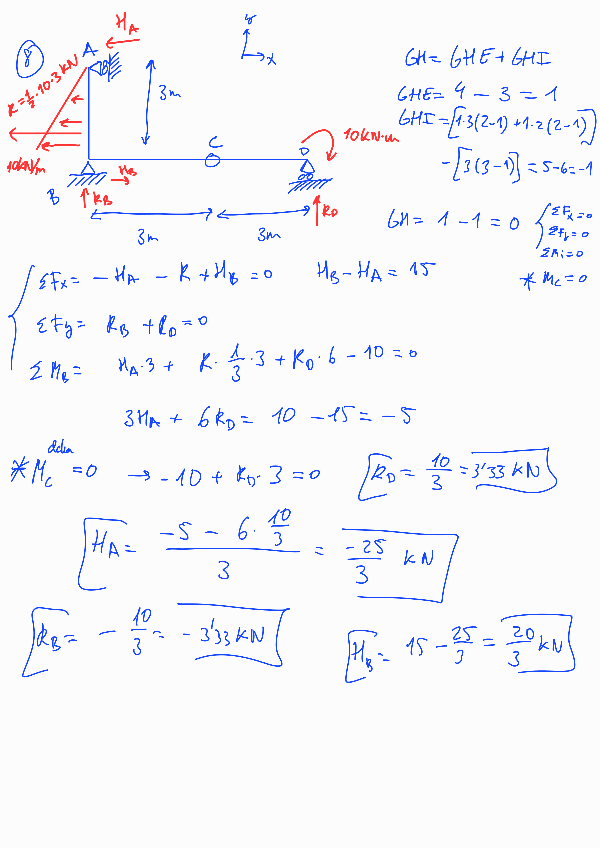 8
H_A
y
x
A
R=1/2·10·3 kN
3m
10kN/m
C
D
10KN·m
B
H_B
R_B
R_D
3m
3m
GH = GHE + GHI
GHE = 4 - 3 = 1
GHI = [1·3(2-1) + 1·2(2-1)]
- [3(3-1)] = 5-6 = -1
GH = 1 - 1 = 0 { ΣFx=0
ΣFy=0
ΣMi=0
* M_C = 0
ΣFx = - H_A - R + H_B = 0 H_B - H_A = 15
ΣFy = R_B + R_D = 0
ΣM_B = H_A·3 + R·1/3·3 + R_D·6 - 10 = 0
3H_A + 6R_D = 10 - 15 = -5
*M_C = 0 → -10 + R_D·3 = 0 R_D = 10/3 = 3'33 KN
H_A = (-5 - 6·10/3)/3 = -25/3 KN
R_B = - 10/3 = - 3'33 KN
H_B = 15 - 25/3 = 20/3 KN